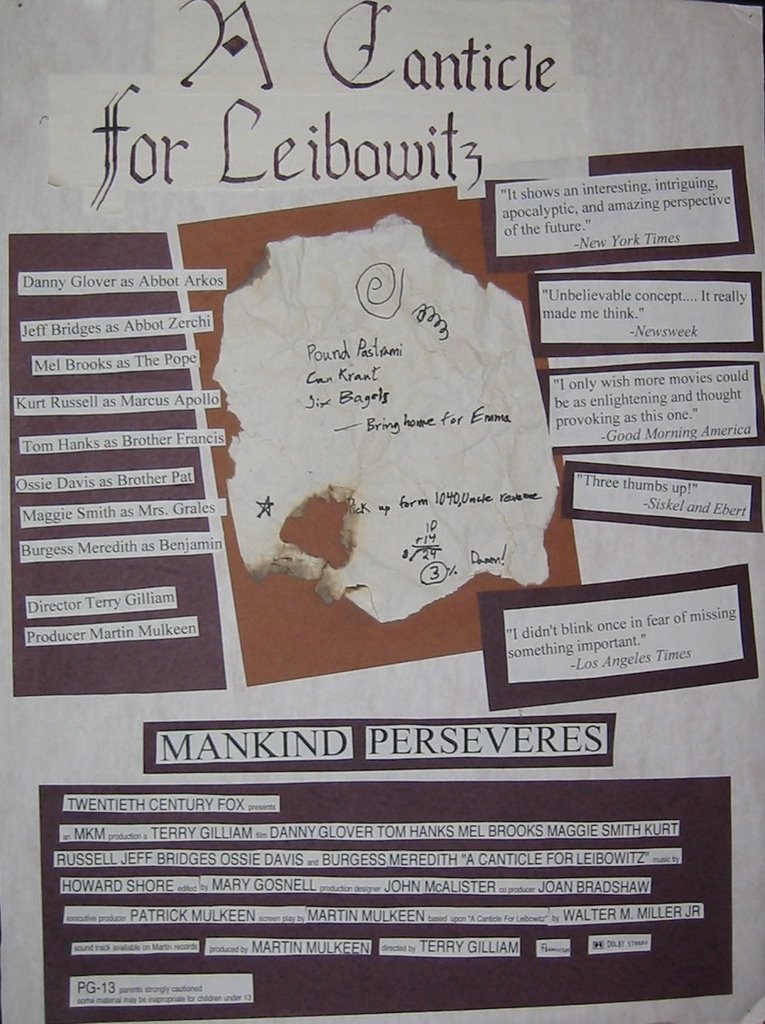 A Canticle
for Leibowitz
Danny Glover as Abbot Arkos
Jeff Bridges as Abbot Zerchi
Mel Brooks as The Pope
Kurt Russell as Marcus Apollo
Tom Hanks as Brother Francis
Ossie Davis as Brother Pat
Maggie Smith as Mrs. Grales
Burgess Meredith as Benjamin
Director Terry Gilliam
Producer Martin Mulkeen
Pound Pastrami
Can Kraut
Six Bagels
— Bring home for Emma
Pick up form 1040, Uncle revenue
10
+14
24
3 %
Damn!
"It shows an interesting, intriguing,
apocalyptic, and amazing perspective
of the future."
-New York Times
"Unbelievable concept.... It really
made me think."
-Newsweek
"I only wish more movies could
be as enlightening and thought
provoking as this one."
-Good Morning America
"Three thumbs up!"
-Siskel and Ebert
"I didn't blink once in fear of missing
something important."
-Los Angeles Times
MANKIND PERSEVERES
TWENTIETH CENTURY FOX presents
an MKM production a TERRY GILLIAM film DANNY GLOVER TOM HANKS MEL BROOKS MAGGIE SMITH KURT
RUSSELL JEFF BRIDGES OSSIE DAVIS and BURGESS MEREDITH "A CANTICLE FOR LEIBOWITZ" music by
HOWARD SHORE edited by MARY GOSNELL production designer JOHN McALISTER co producer JOAN BRADSHAW
executive producer PATRICK MULKEEN screen play by MARTIN MULKEEN based upon "A Canticle For Leibowitz" by WALTER M. MILLER JR
sound track available on Martin records produced by MARTIN MULKEEN directed by TERRY GILLIAM DOLBY STEREO
PG-13 parents strongly cautioned
some material may be inapropriate for children under 13